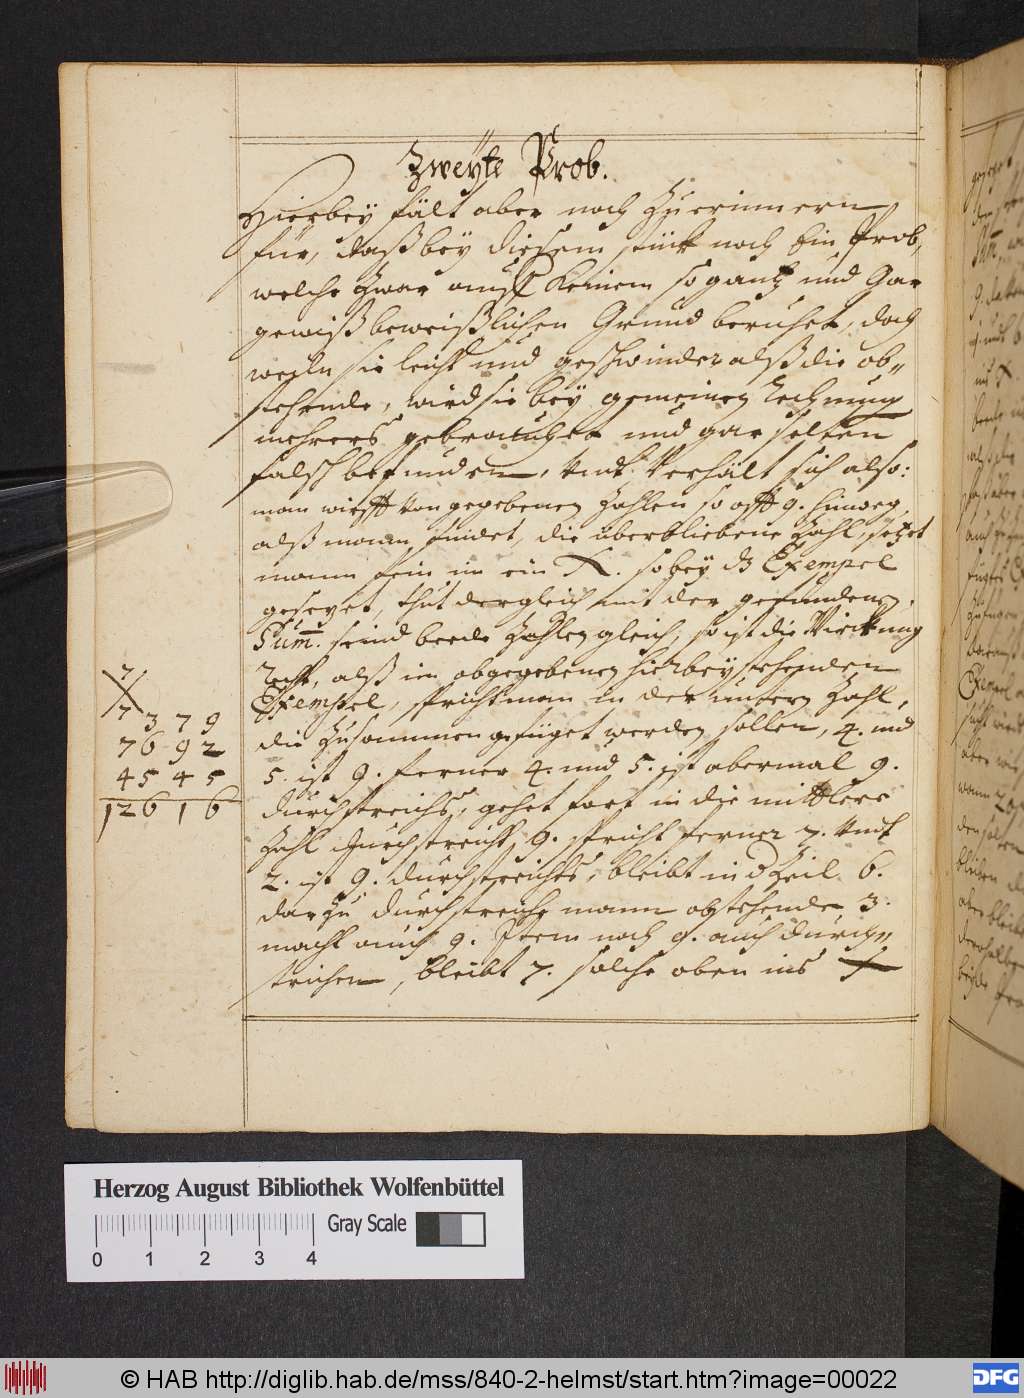 Zweyte Prob.
Hierbey fält aber noch Zu erinnern
für, daß bey diesem stück noch Ein Prob,
welche Zwar auff keinem so gantz und Gar
gewiß beweißlichen Grund beruhet, doch
weiln sie leicht und geschwinder alß die ob-
stehende, wird sie bey gemeinen Rechnung
mehrers gebrauchet und gar selten
falsch befunden, Undt Verhält sich also:
man wirfft von gegebenen Zahlen so offt 9. hinweg,
alß mann findet, die überbliebene Zahl, setzet
mann hein in ein X. so bey Exempel
gesezet, thut dergleich mit der gefundenen
Sum. seind beede Zahlen gleich, so ist die Wirckung
Recht, alß im obgegebenen hierbey stehenden
Exempel, spricht man in der untern Zahl,
die Zusammen gefüget werden sollen, 4. und
5. ist 9. ferner 4. und 5. ist abermal 9.
durchstreichs, gehet fort in die mittlere
Zahl durchstreicht 9. spricht ferner 7. Undt
2. ist 9. durchstreichts, bleibt in d Zeil 6.
darzu durchstreiche mann obstehende 3.
macht auch 9. Item noch 9. auch durch-
strichen, bleibt 7. solche oben ins X
7
7
3 7 9
76 92
45 45
126 1 6
Herzog August Bibliothek Wolfenbüttel
Gray Scale
0 1 2 3 4
© HAB http://diglib.hab.de/mss/840-2-helmst/start.htm?image=00022
DFG